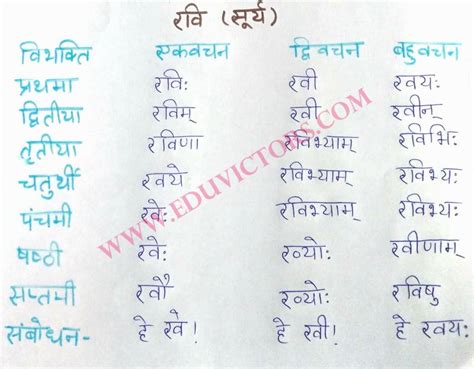 रवि (सूर्य)
विभक्ति एकवचन द्विवचन बहुवचन
प्रथमा रविः रवी रवयः
द्वितीया रविम् रवी रवीन्
तृतीया रविणा रविभ्याम् रविभिः
चतुर्थी रवये रविभ्याम् रविभ्यः
पंचमी रवेः रविभ्याम् रविभ्यः
षष्ठी रवेः रव्योः रवीणाम्
सप्तमी रवौ रव्योः रविषु
संबोधन- हे रवे! हे रवी! हे रवयः
WWW.EDUVICTORS.COM